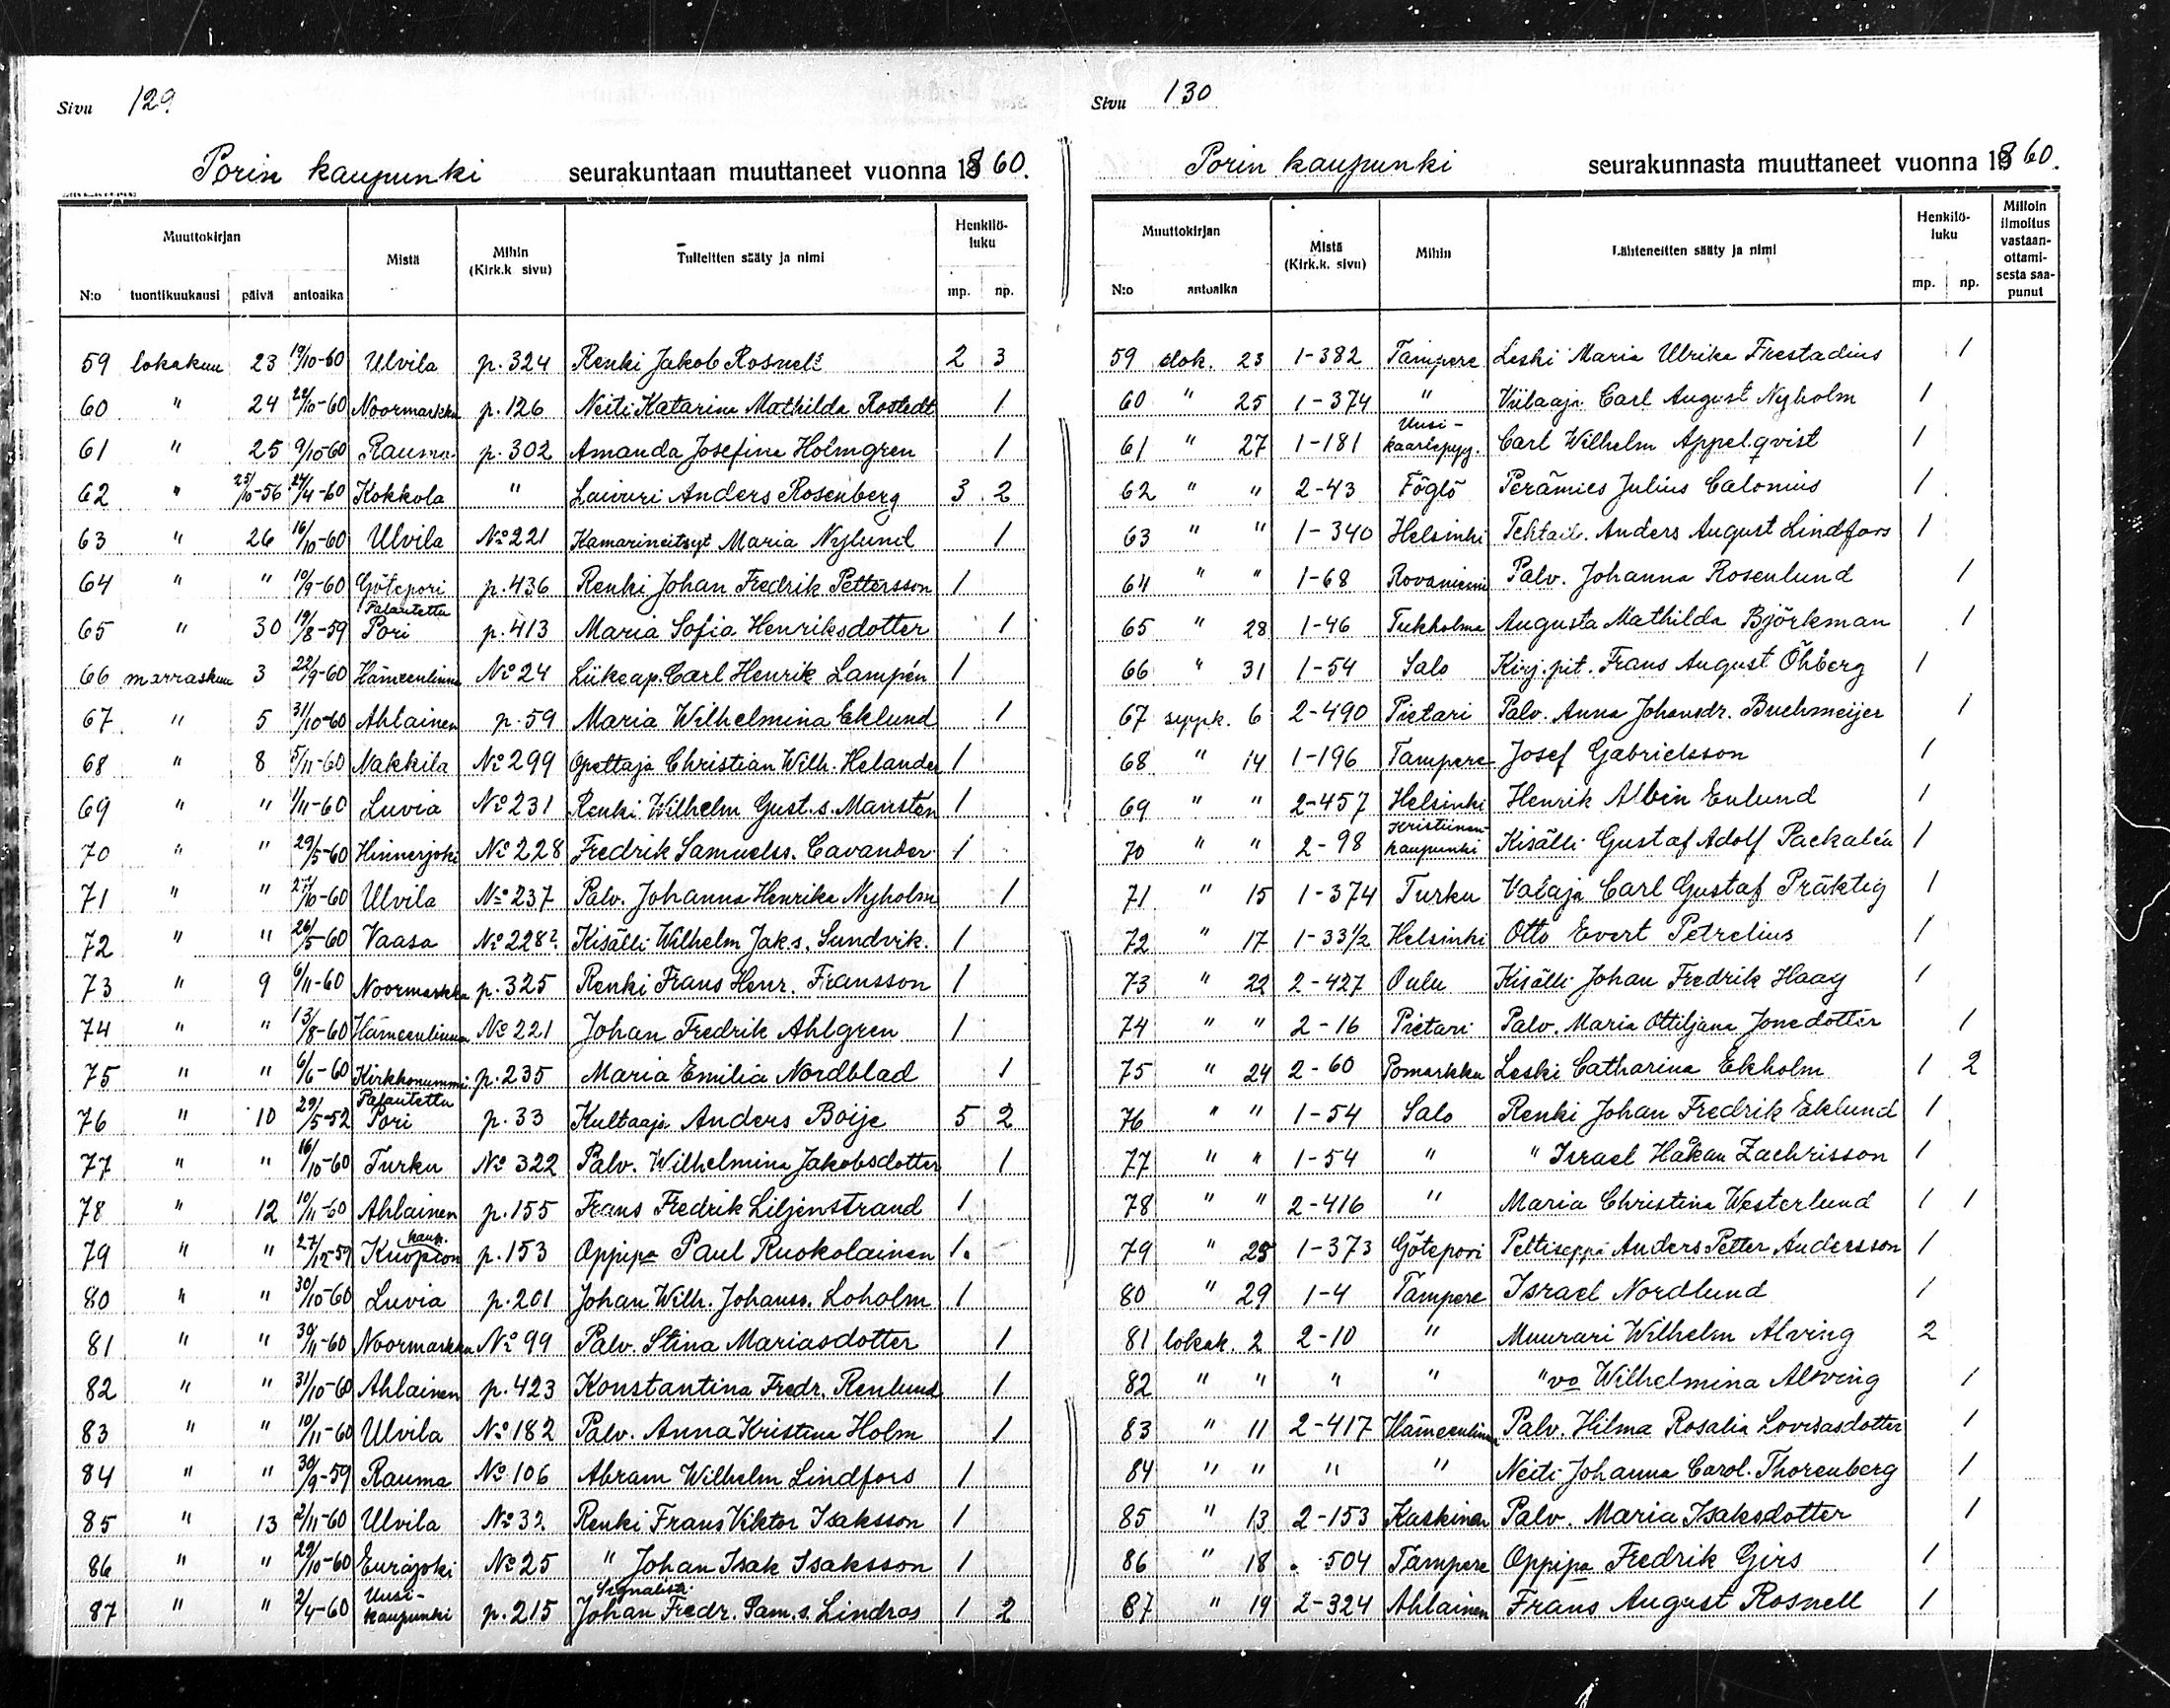 Sivu 129
Porin kaupunki seurakuntaan muuttaneet vuonna 1860.
Muuttokirjan Mistä Mihin (Kirk.k. sivu) Tulleitten sääty ja nimi Henkilöluku
N:o tuontikuukausi päivä antoaika mp. np.
59 lokakuu 23 19/10-60 Ulvila p. 324 Renki Jakob Rosnell 2 3
60 " 24 22/10-60 Noormarkku p. 126 Neiti Katarina Mathilda Rostedt 1
61 " 25 9/10-60 Rauma p. 302 Amanda Josefina Holmgren 1
62 " 25/10-56 24/4-60 Kokkola " Laivuri Anders Rosenberg 3 2
63 " 26 16/10-60 Ulvila No 221 Kamarineitsyt Maria Nylund 1
64 " " 10/9-60 Götepori p. 436 Renki Johan Fredrik Pettersson 1
65 " 30 19/8-59 Palautettu Pori p. 413 Maria Sofia Henriksdotter 1
66 marraskuu 3 22/9-60 Hämeenlinna No 24 Liikeap. Carl Henrik Lampén 1
67 " 5 31/10-60 Ahlainen p. 59 Maria Wilhelmina Eklund 1
68 " 8 5/11-60 Nakkila No 299 Opettaja Christian Wilh. Helander 1
69 " " 1/11-60 Luvia No 231 Renki Wilhelm Gust.s. Mansten 1
70 " " 29/5-60 Hinnerjoki No 228 Fredrik Samuelss. Cavander 1
71 " " 27/10-60 Ulvila No 237 Palv. Johanna Henrika Nyholm 1
72 " " 26/5-60 Vaasa No 228? Kisälli Wilhelm Jak.s. Sundvik. 1
73 " 9 6/11-60 Noormarkku p. 325 Renki Frans Henr. Fransson 1
74 " " 13/8-60 Hämeenlinna No 221 Johan Fredrik Ahlgren 1
75 " " 6/6-60 Kirkkonummi p. 235 Maria Emilia Nordblad 1
76 " 10 29/5-52 Palautettu Pori p. 33 Kultaaja Anders Boije 5 2
77 " " 16/10-60 Turku No 322 Palv. Wilhelmina Jakobsdotter 1
78 " 12 10/11-60 Ahlainen p. 155 Frans Fredrik Liljenstrand 1
79 " " 27/12-59 Kuopion kaup. p. 153 Oppipa Paul Ruokolainen 1.
80 " " 30/10-60 Luvia p. 201 Johan Wilh. Johanss. Loholm 1
81 " " 30/11-60 Noormarkku No 99 Palv. Stina Mariasdotter 1
82 " " 31/10-60 Ahlainen p. 423 Konstantina Fredr. Renlund 1
83 " " 10/11-60 Ulvila No 182 Palv. Anna Kristina Holm 1
84 " " 30/9-59 Rauma No 106 Abram Wilhelm Lindfors 1
85 " 13 2/11-60 Ulvila No 32 Renki Frans Viktor Isaksson 1
86 " " 29/10-60 Eurajoki No 25 " Johan Isak Isaksson 1
87 " " 2/4-60 Uusi-kaupunki p. 215 Signalisti Johan Fredr. Sam.s. Lindros 1 2
Sivu 130
Porin kaupunki seurakunnasta muuttaneet vuonna 1860.
Muuttokirjan Mistä (Kirk.k. sivu) Mihin Lähteneitten sääty ja nimi Henkilöluku Milloin ilmoitus vastaanottamisesta saapunut
N:o antoaika mp. np.
59 elok. 23 1-382 Tampere Leski Maria Ulrika Frestadius 1
60 " 25 1-374 " Viilaaja Carl August Nyholm 1
61 " 27 1-181 Uusi-kaarlepyy. Carl Wilhelm Appelqvist 1
62 " " 2-43 Föglö Perämies Julius Calonius 1
63 " " 1-340 Helsinki Tehtail. Anders August Lindfors 1
64 " " 1-68 Rovaniemi Palv. Johanna Rosenlund 1
65 " 28 1-46 Tukholma Augusta Mathilda Björkman 1
66 " 31 1-54 Salo Kirj.pit. Frans August Öhberg 1
67 syysk. 6 2-490 Pietari Palv. Anna Johansdr. Buchmeijer 1
68 " 14 1-196 Tampere Josef Gabrielsson 1
69 " " 2-457 Helsinki Henrik Albin Enlund 1
70 " " 2-98 Kristiinankaupunki Kisälli Gustaf Adolf Packalén 1
71 " 15 1-374 Turku Valaja Carl Gustaf Präktig 1
72 " 17 1-33 1/2 Helsinki Otto Evert Petrelius 1
73 " 22 2-427 Oulu Kisälli Johan Fredrik Haag 1
74 " " 2-16 Pietari Palv. Maria Ottiljana Jonedotter 1
75 " 24 2-60 Pomarkku Leski Catharina Ekholm 1 2
76 " " 1-54 Salo Renki Johan Fredrik Eklund 1
77 " " 1-54 " " Israel Håkan Zachrisson 1
78 " " 2-416 " Maria Christina Westerlund 1 1
79 " 25 1-373 Götepori Peltiseppä Anders Petter Andersson 1
80 " 29 1-4 Tampere Israel Nordlund 1
81 lokak. 2 2-10 " Muurari Wilhelm Alving 2
82 " " " " " vo Wilhelmina Alving 1
83 " 11 2-417 Hämeenlinna Palv. Hilma Rosalia Lovisasdotter 1
84 " " " " Neiti Johanna Carol. Thorenberg 1
85 " 13 2-153 Kaskinen Palv. Maria Isaksdotter 1
86 " 18 504 Tampere Oppipa Fredrik Girs 1
87 " 19 2-324 Ahlainen Frans August Rosnell 1